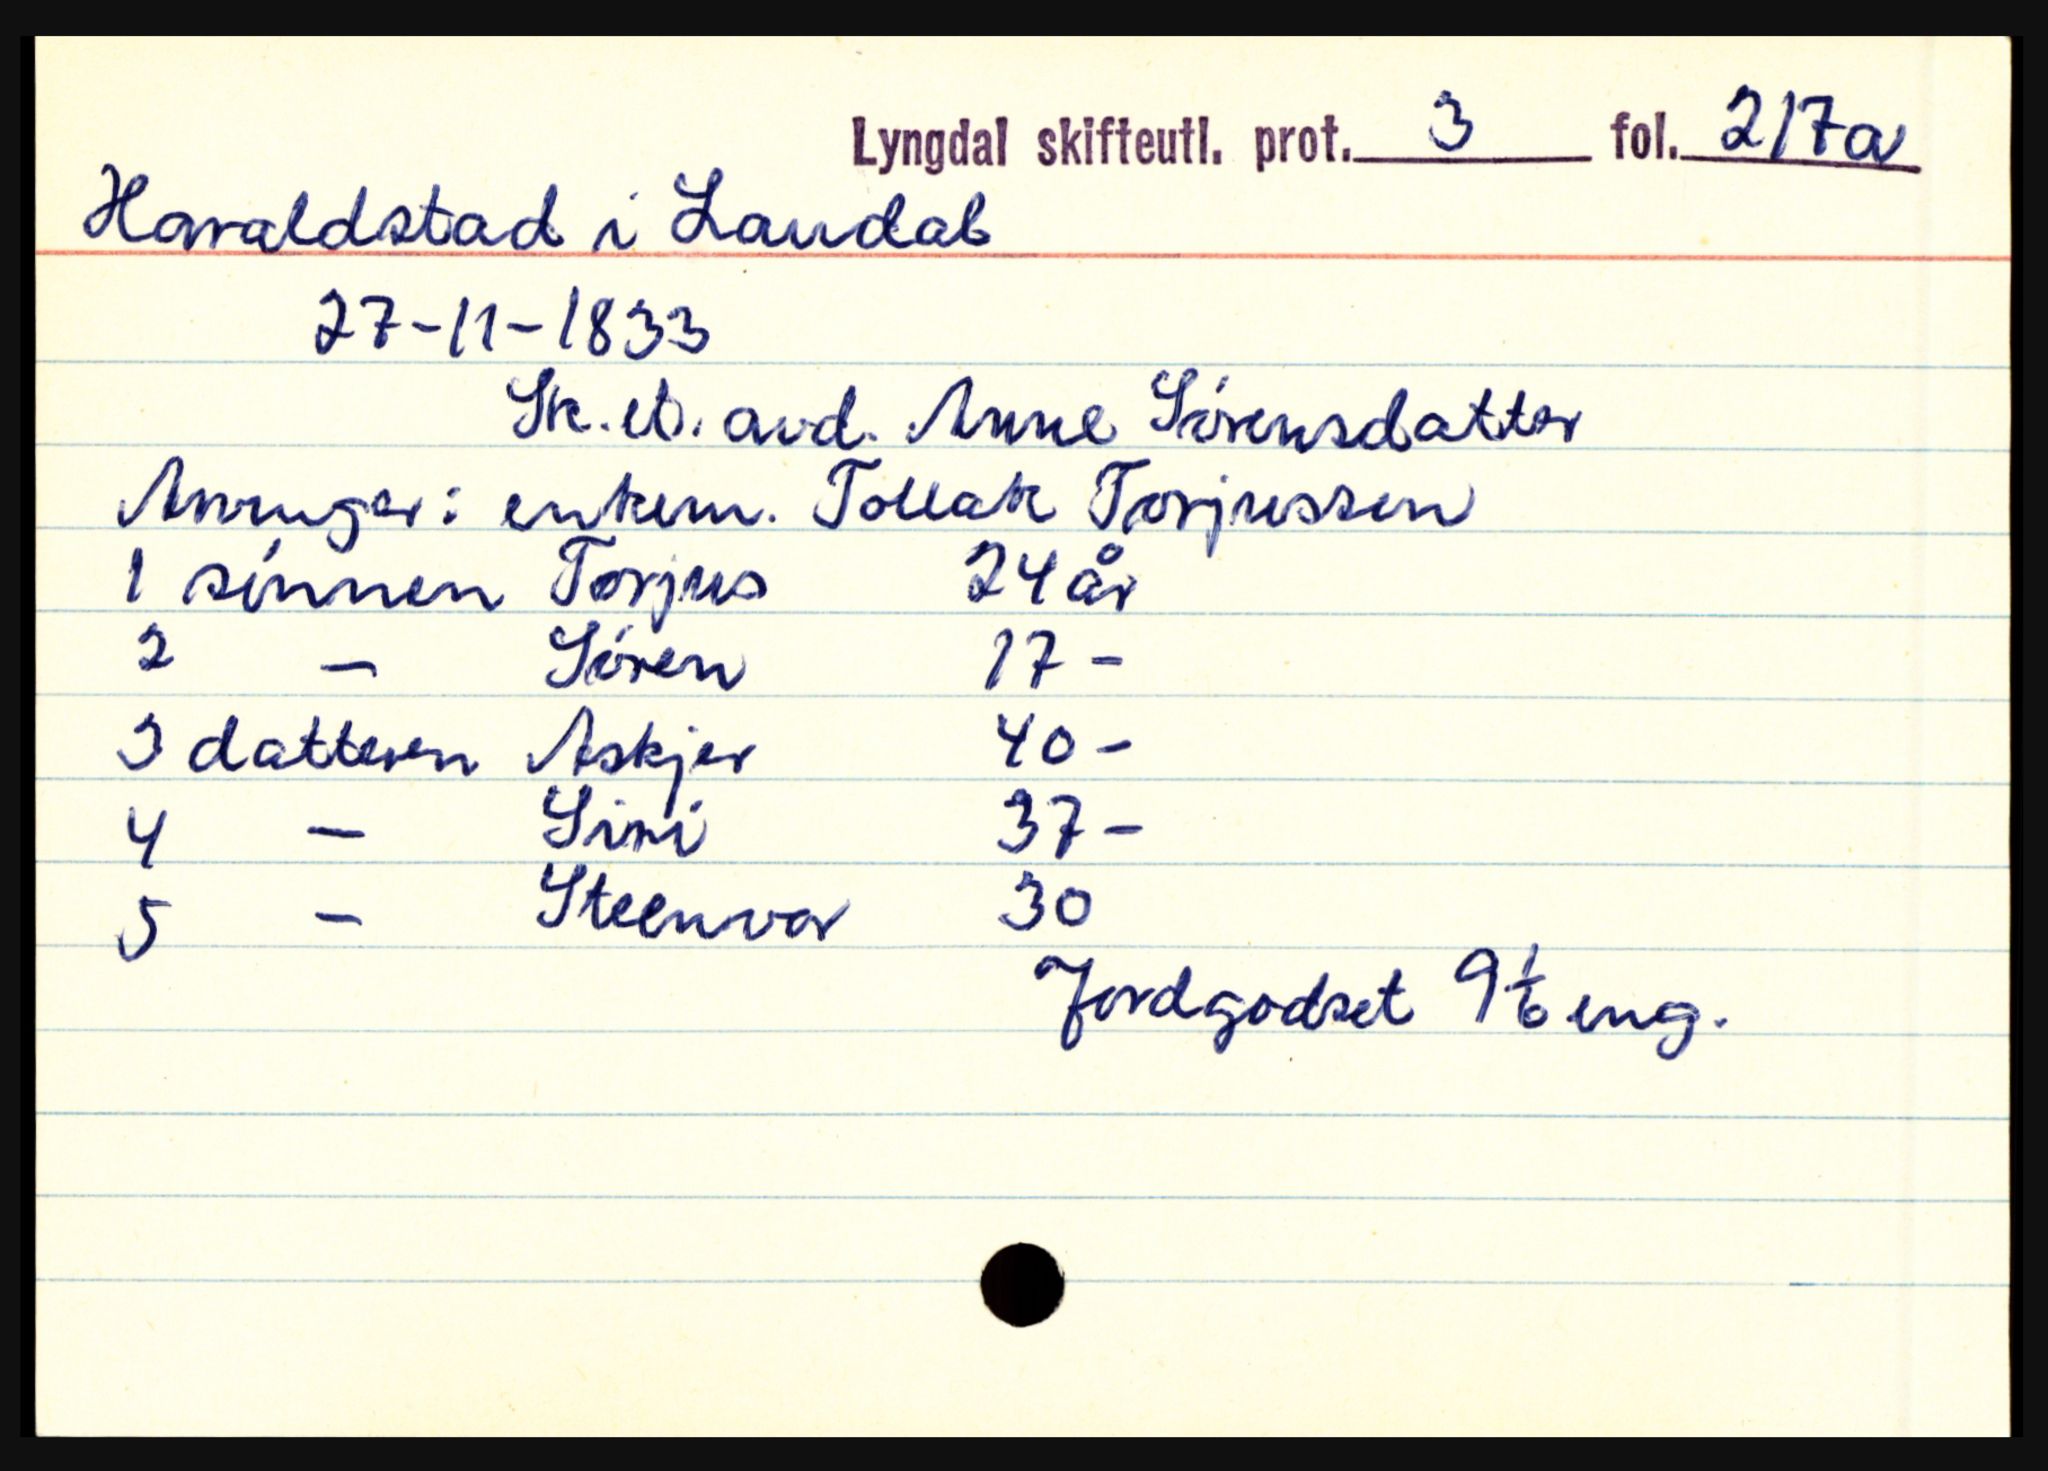 Lyngdal skifteutl. prot. 3 fol. 217a
Haraldstad i Laudal
27-11-1833
Sk. et. avd. Anne Sørensdatter
Arvinger: enkem. Tollak Torjussen
1 sønnen Torjus 24 år
2 - Søren 17 -
3 datteren Askjer 40 -
4 - Siri 37 -
5 - Steenvor 30
Jordgodset 9 1/6 eng.